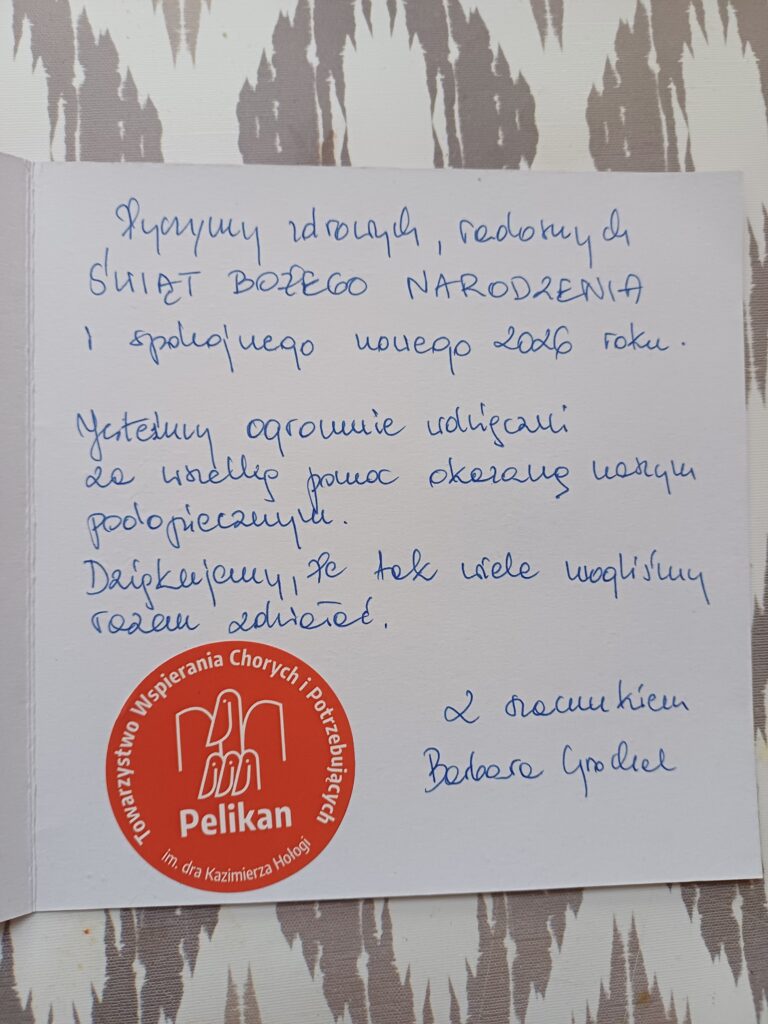 Życzymy zdrowych, radosnych
ŚWIĄT BOŻEGO NARODZENIA
i spokojnego nowego 2026 roku.
Jesteśmy ogromnie wdzięczni
za wszelką pomoc okazaną naszym
podopiecznym.
Dziękujemy, że tak wiele mogliśmy
razem zdziałać.
Z szacunkiem
Barbara
Towarzystwo Wspierania Chorych i Potrzebujących
Pelikan
im. dra Kazimierza Hołogi